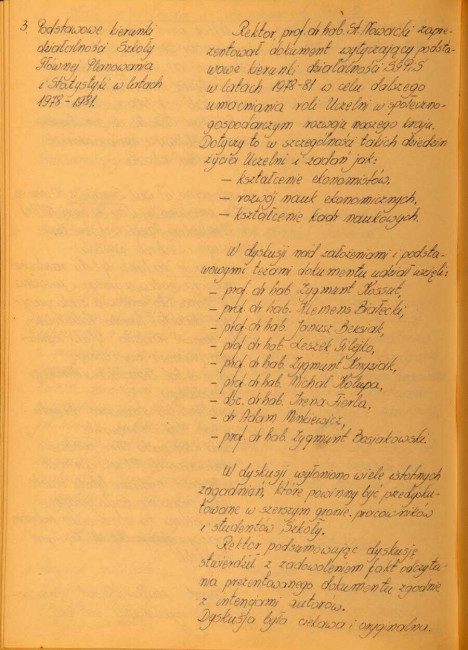 3. Podstawowe kierunki
działalności Szkoły
Głównej Planowania
i Statystyki w latach
1978-1981.
Rektor prof. dr hab. St. Nowacki zapre-
zentował dokument wytyczający podsta-
wowe kierunki działalności SGPiS
w latach 1978-81 w celu dalszego
umacniania roli Uczelni w społeczno-
gospodarczym rozwoju naszego kraju.
Dotyczy to w szczególności takich dziedzin
życia Uczelni i zadań jak:
– kształcenie ekonomistów,
– rozwój nauk ekonomicznych,
– kształcenie kadr naukowych.
W dyskusji nad założeniami i podsta-
wowymi tezami dokumentu udział wzięli:
– prof. dr hab. Zygmunt Kossut,
– prof. dr hab. Klemens Białecki,
– prof. dr hab. Janusz Beksiak,
– prof. dr hab. Leszek Gilejko,
– prof. dr hab. Zygmunt Knyziak,
– prof. dr hab. Michał Kolupa,
– doc. dr hab. Irena Fierla,
– dr Adam Minkiewicz,
– prof. dr hab. Zygmunt Bosiakowski.
W dyskusji wyłoniono wiele istotnych
zagadnień, które powinny być przedysku-
towane w szerszym gronie pracowników
i studentów Szkoły.
Rektor podsumowując dyskusję
stwierdził z zadowoleniem fakt odczyta-
nia prezentowanego dokumentu zgodnie
z intencjami autorów.
Dyskusja była ciekawa i oryginalna.